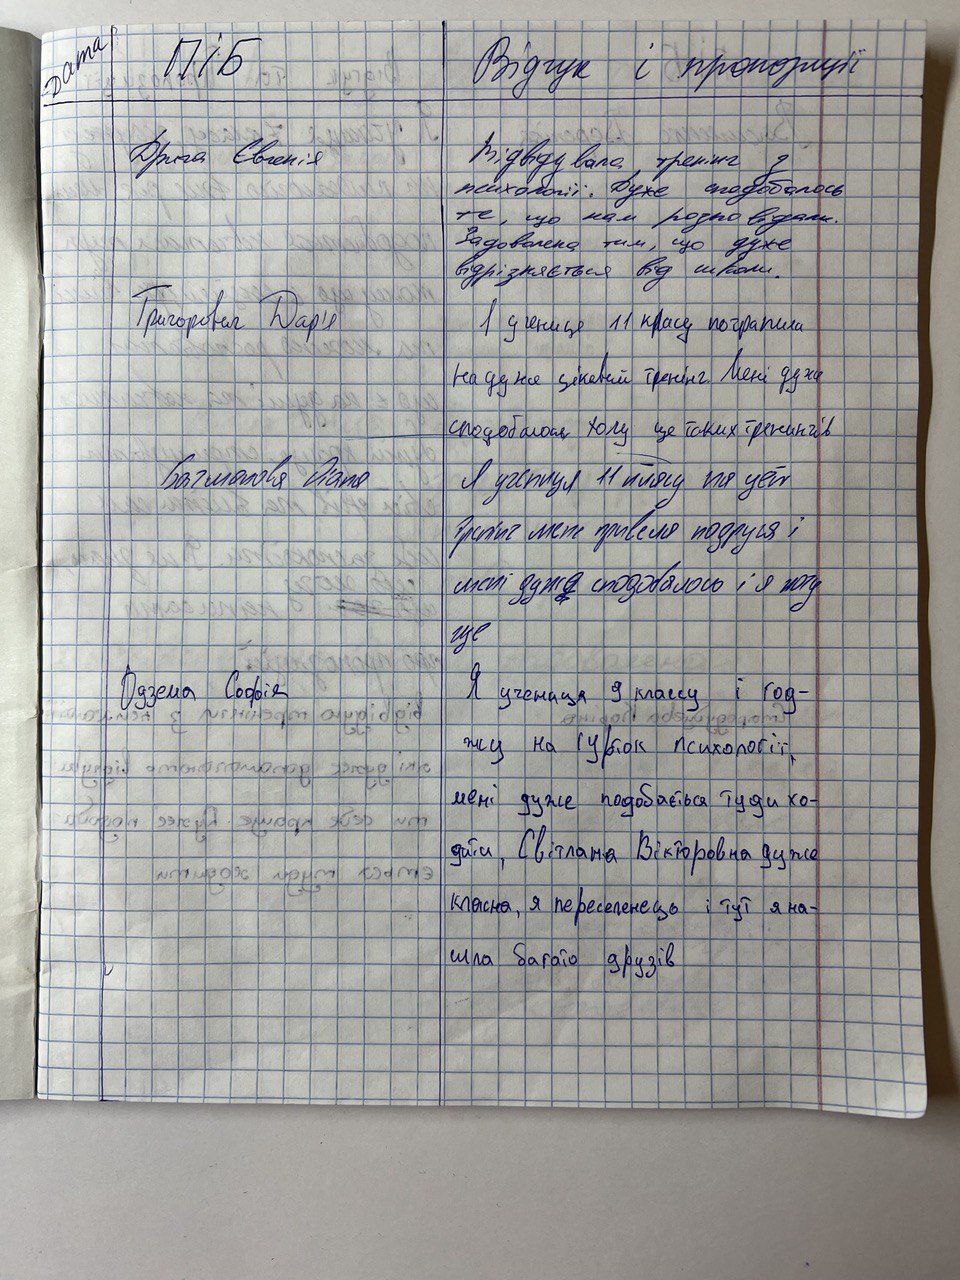 Дата ПіБ Відгук і пропозиції
Дрига Євгенія Відвідувала тренінг з
психології. Дуже сподобалось
те, що нам розповідали.
Задоволена тим, що дуже
відрізняється від школи.
Григорович Дар'я Я учениця 11 класу потрапила
на дуже цікавий тренінг. Мені дуже
сподобалося хочу ще таких тренингів
Діана Я учениця 11 класу на цей
тренінг мене привела подруга і
мені дуже сподобалось і я хочу
ще
Одзема Софія Я учениця 9 классу і ход-
жу на гурток психології,
мені дуже подобається туди хо-
дити, Світлана Вікторовна дуже
класна, я переселенець і тут я на-
шла багато друзів